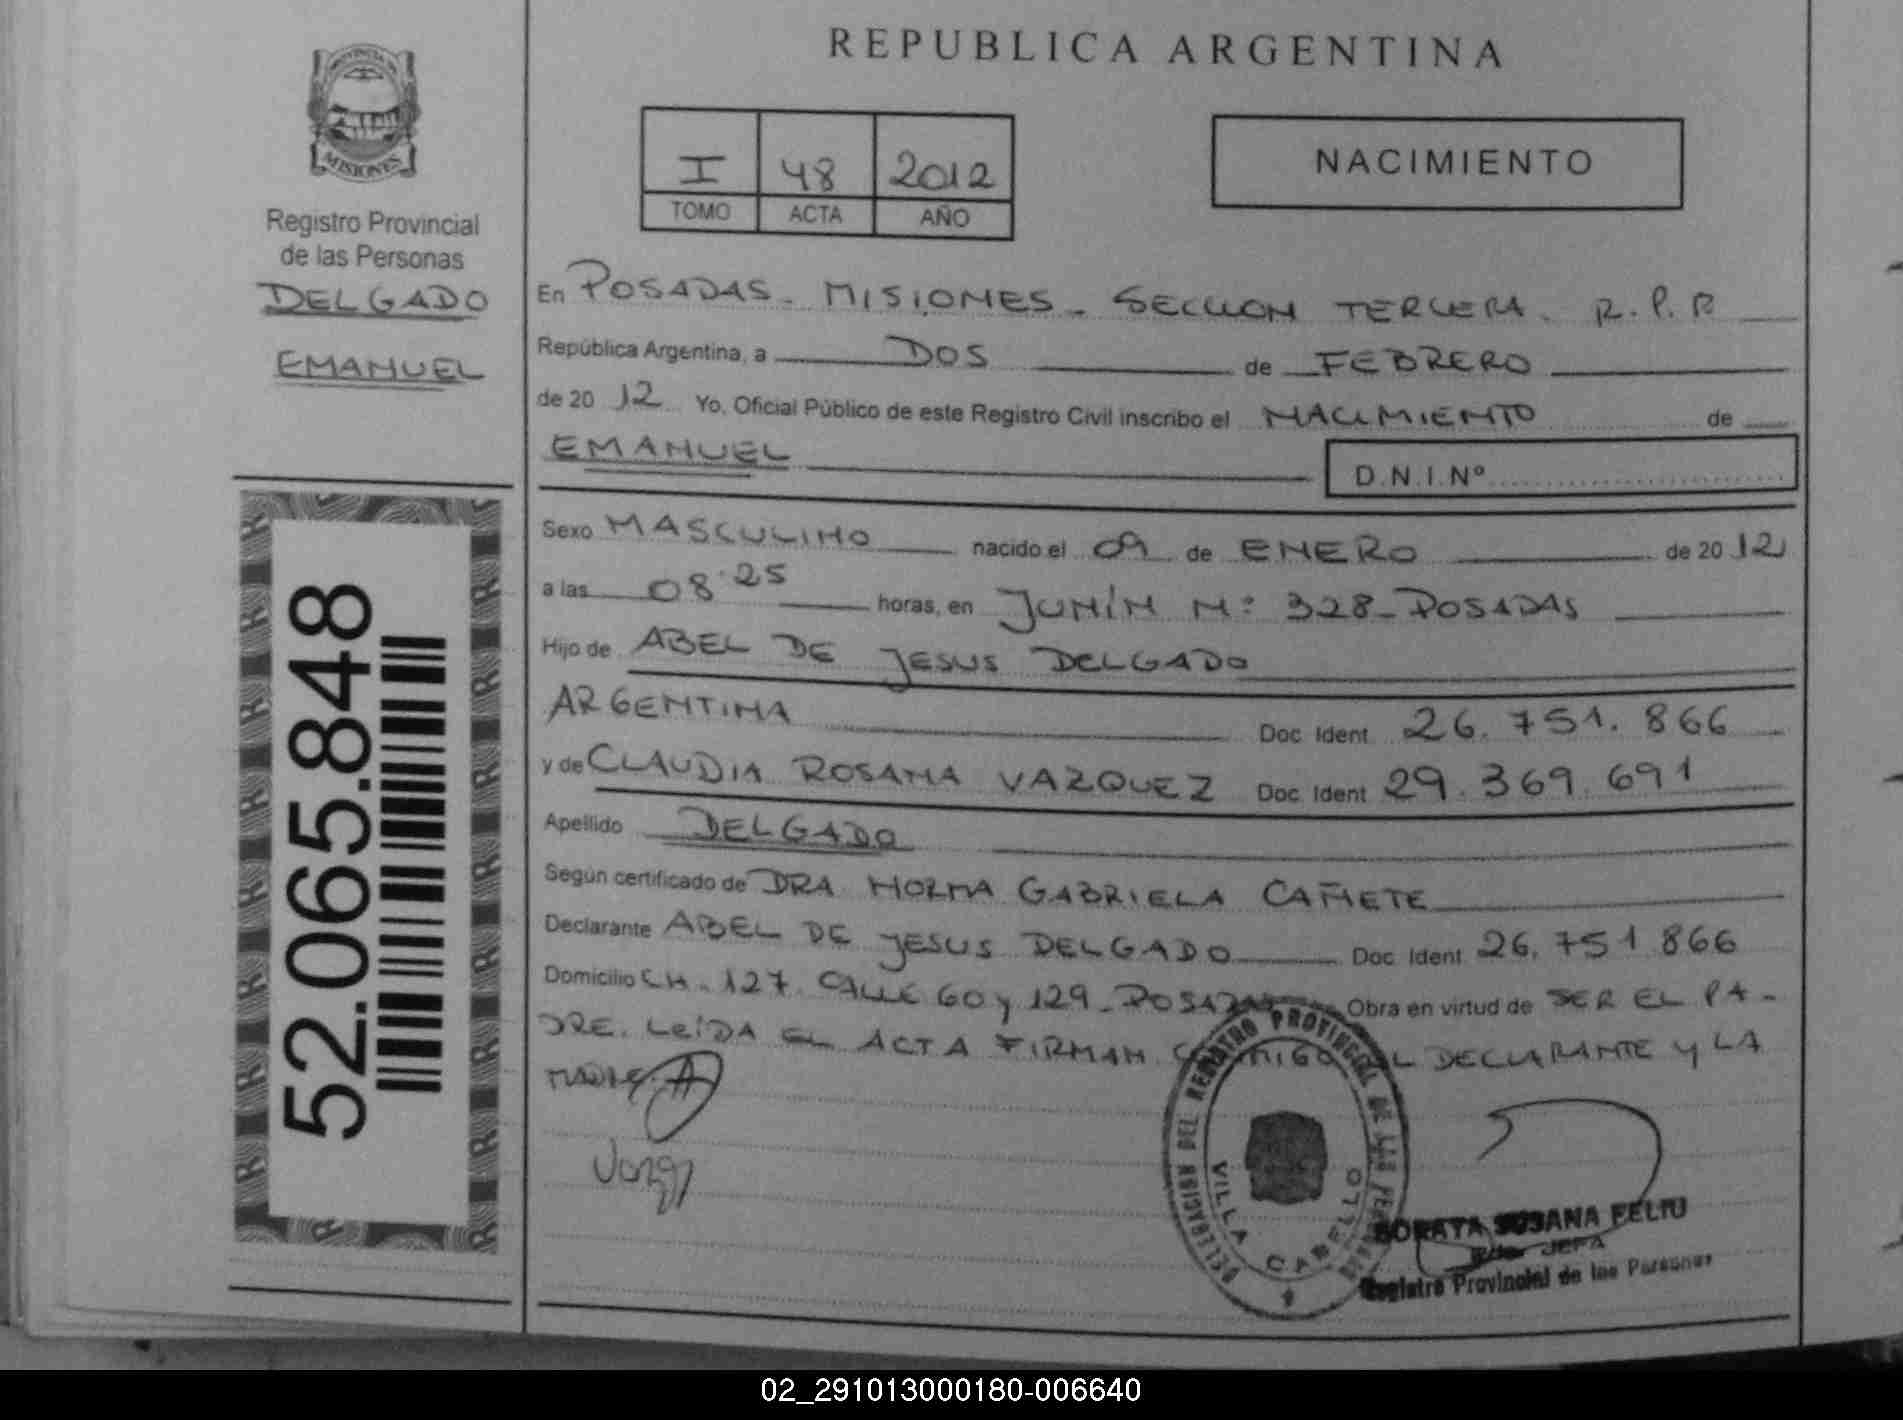 REPUBLICA ARGENTINA
PROVINCIA DE
MISIONES
Registro Provincial
de las Personas
DELGADO
EMANUEL
52.065.848
I 48 2012
TOMO ACTA AÑO
NACIMIENTO
En POSADAS - MISIONES - SECCION TERCERA. R.P.P
República Argentina, a DOS de FEBRERO
de 20 12 Yo, Oficial Público de este Registro Civil inscribo el NACIMIENTO de
EMANUEL D.N.I.Nº
Sexo MASCULINO nacido el 09 de ENERO de 20 12
a las 08:25 horas, en JUNÍN Nº 328 - POSADAS
Hijo de ABEL DE JESUS DELGADO
ARGENTINA Doc Ident 26.751.866
y de CLAUDIA ROSANA VAZQUEZ Doc Ident 29.369.691
Apellido DELGADO
Según certificado de DRA NORMA GABRIELA CAÑETE
Declarante ABEL DE JESUS DELGADO Doc Ident 26.751.866
Domicilio CH. 127. CALLE 60 y 129 - POSADAS Obra en virtud de SER EL PA-
DRE. LEÍDA EL ACTA FIRMAN CONMIGO EL DECLARANTE y LA
MADRE.
DELEGACION DEL REGISTRO PROVINCIAL DE LAS PERSONAS
VILLA CABELLO
SORAYA SUSANA FELIU
JEFA
Registro Provincial de las Personas
02_291013000180-006640